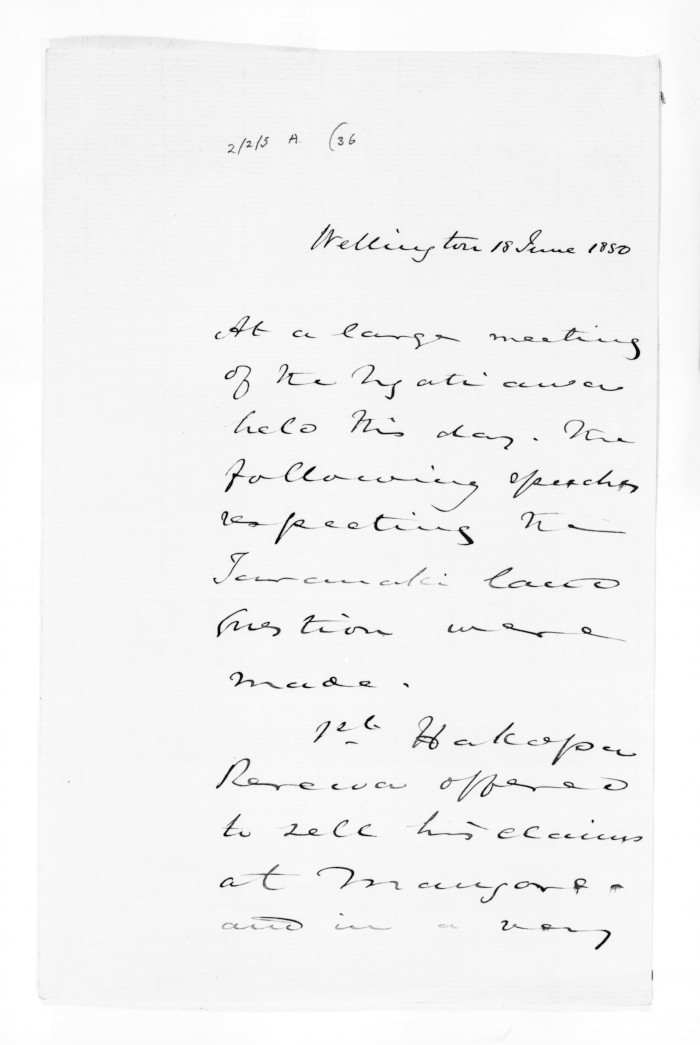 2/2/5 A. (36
Wellington 18 June 1850
At a large meeting
of the Ngatiawa
held this day. the
following speeches
respecting the
Taranaki land
question were
made.
1st Hakopa
Rerewa offered
to sell his claims
at Mangore -
and in a very